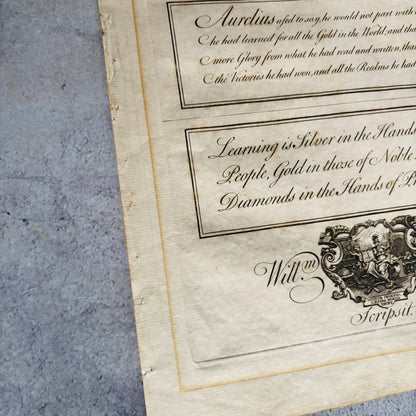 Aurelius us'd to say, he would not part with
he had learned for all the Gold in the World, and tha
more Glory from what he had read and written, than
the Victories he had won, and all the Realms he had
Learning is Silver in the Hands
People, Gold in those of Noble
Diamonds in the Hands of P
Willm
Scripsit.